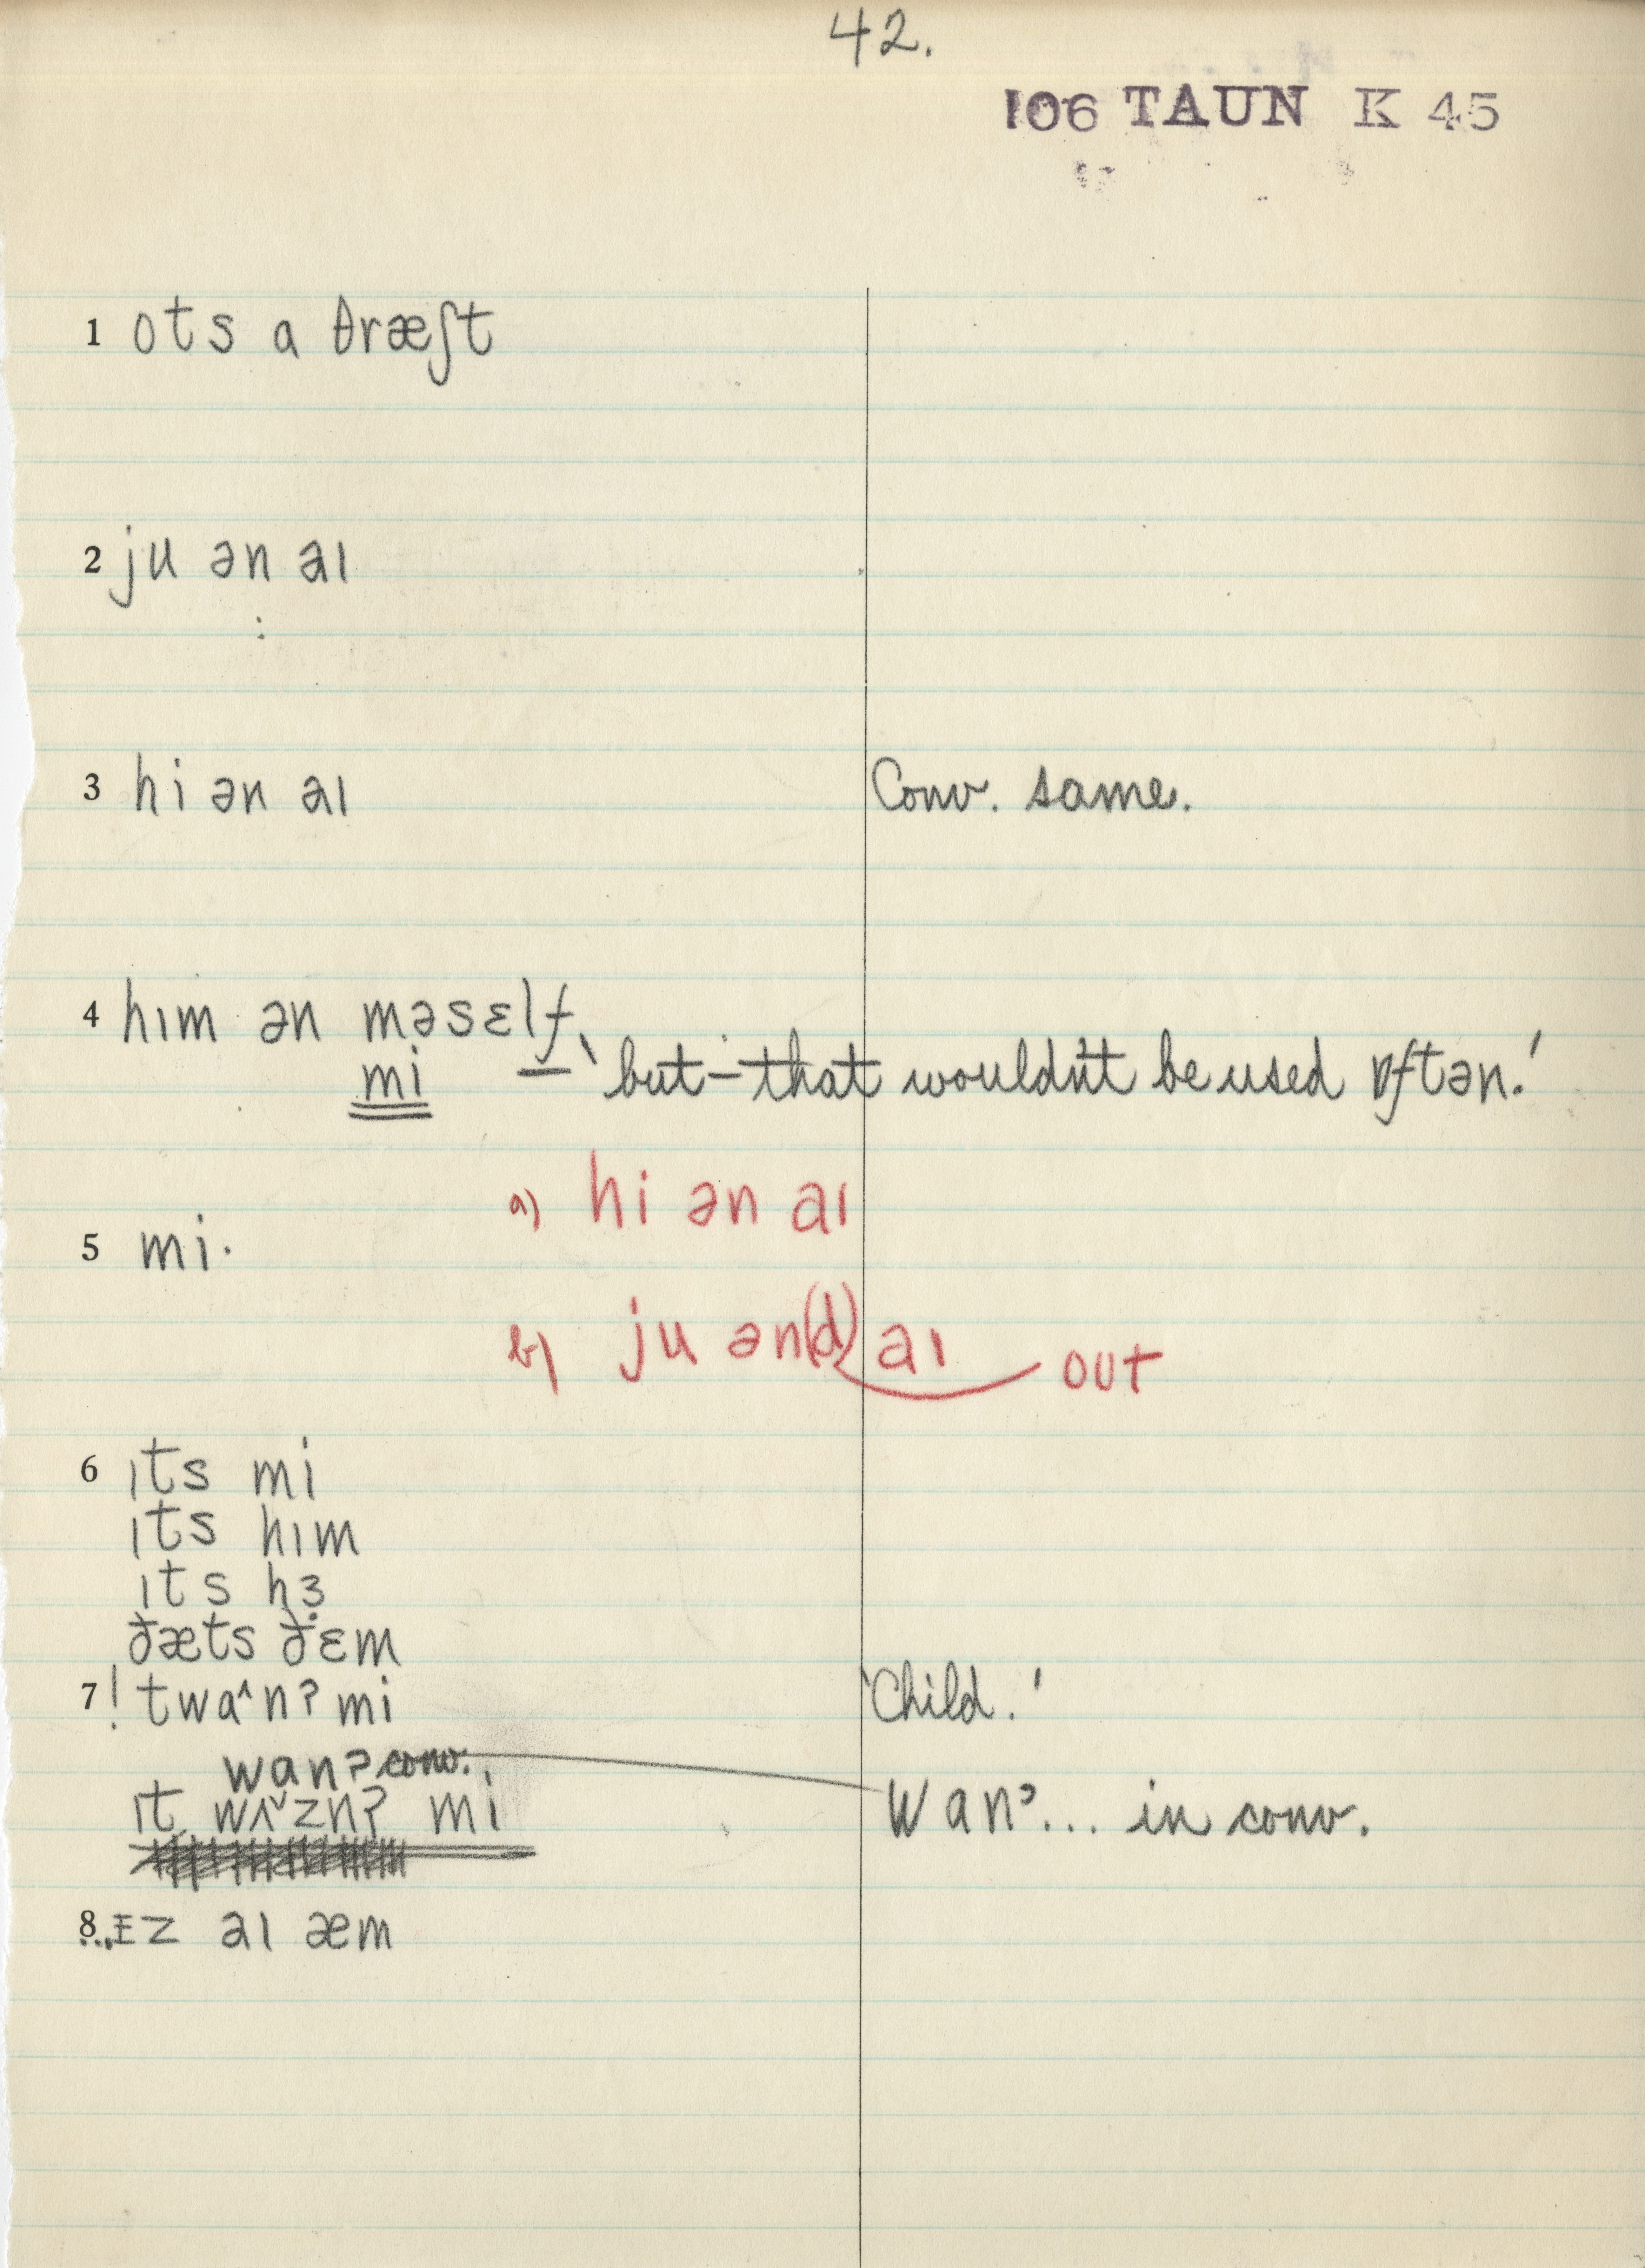 42.
106 TAUN K 45
1 ots a θræʃt
2 ju ən aɪ
:
3 hi ən aɪ Conv. same.
4 hɪm ən məsɛlf,
mi — 'but – that wouldn't be used ɒftən.'
a) hi ən aɪ
5 mi·
b) ju ən(d) aɪ out
6 ɪts mi
ɪts hɪm
ɪts hɜ
ðæts ðɛm
7 ! twaˆnʔ mi 'Child.'
wanʔ conv.
ɪt wʌˇznʔ mi Wanʔ... in conv.
8 ..ɪz aɪ æm